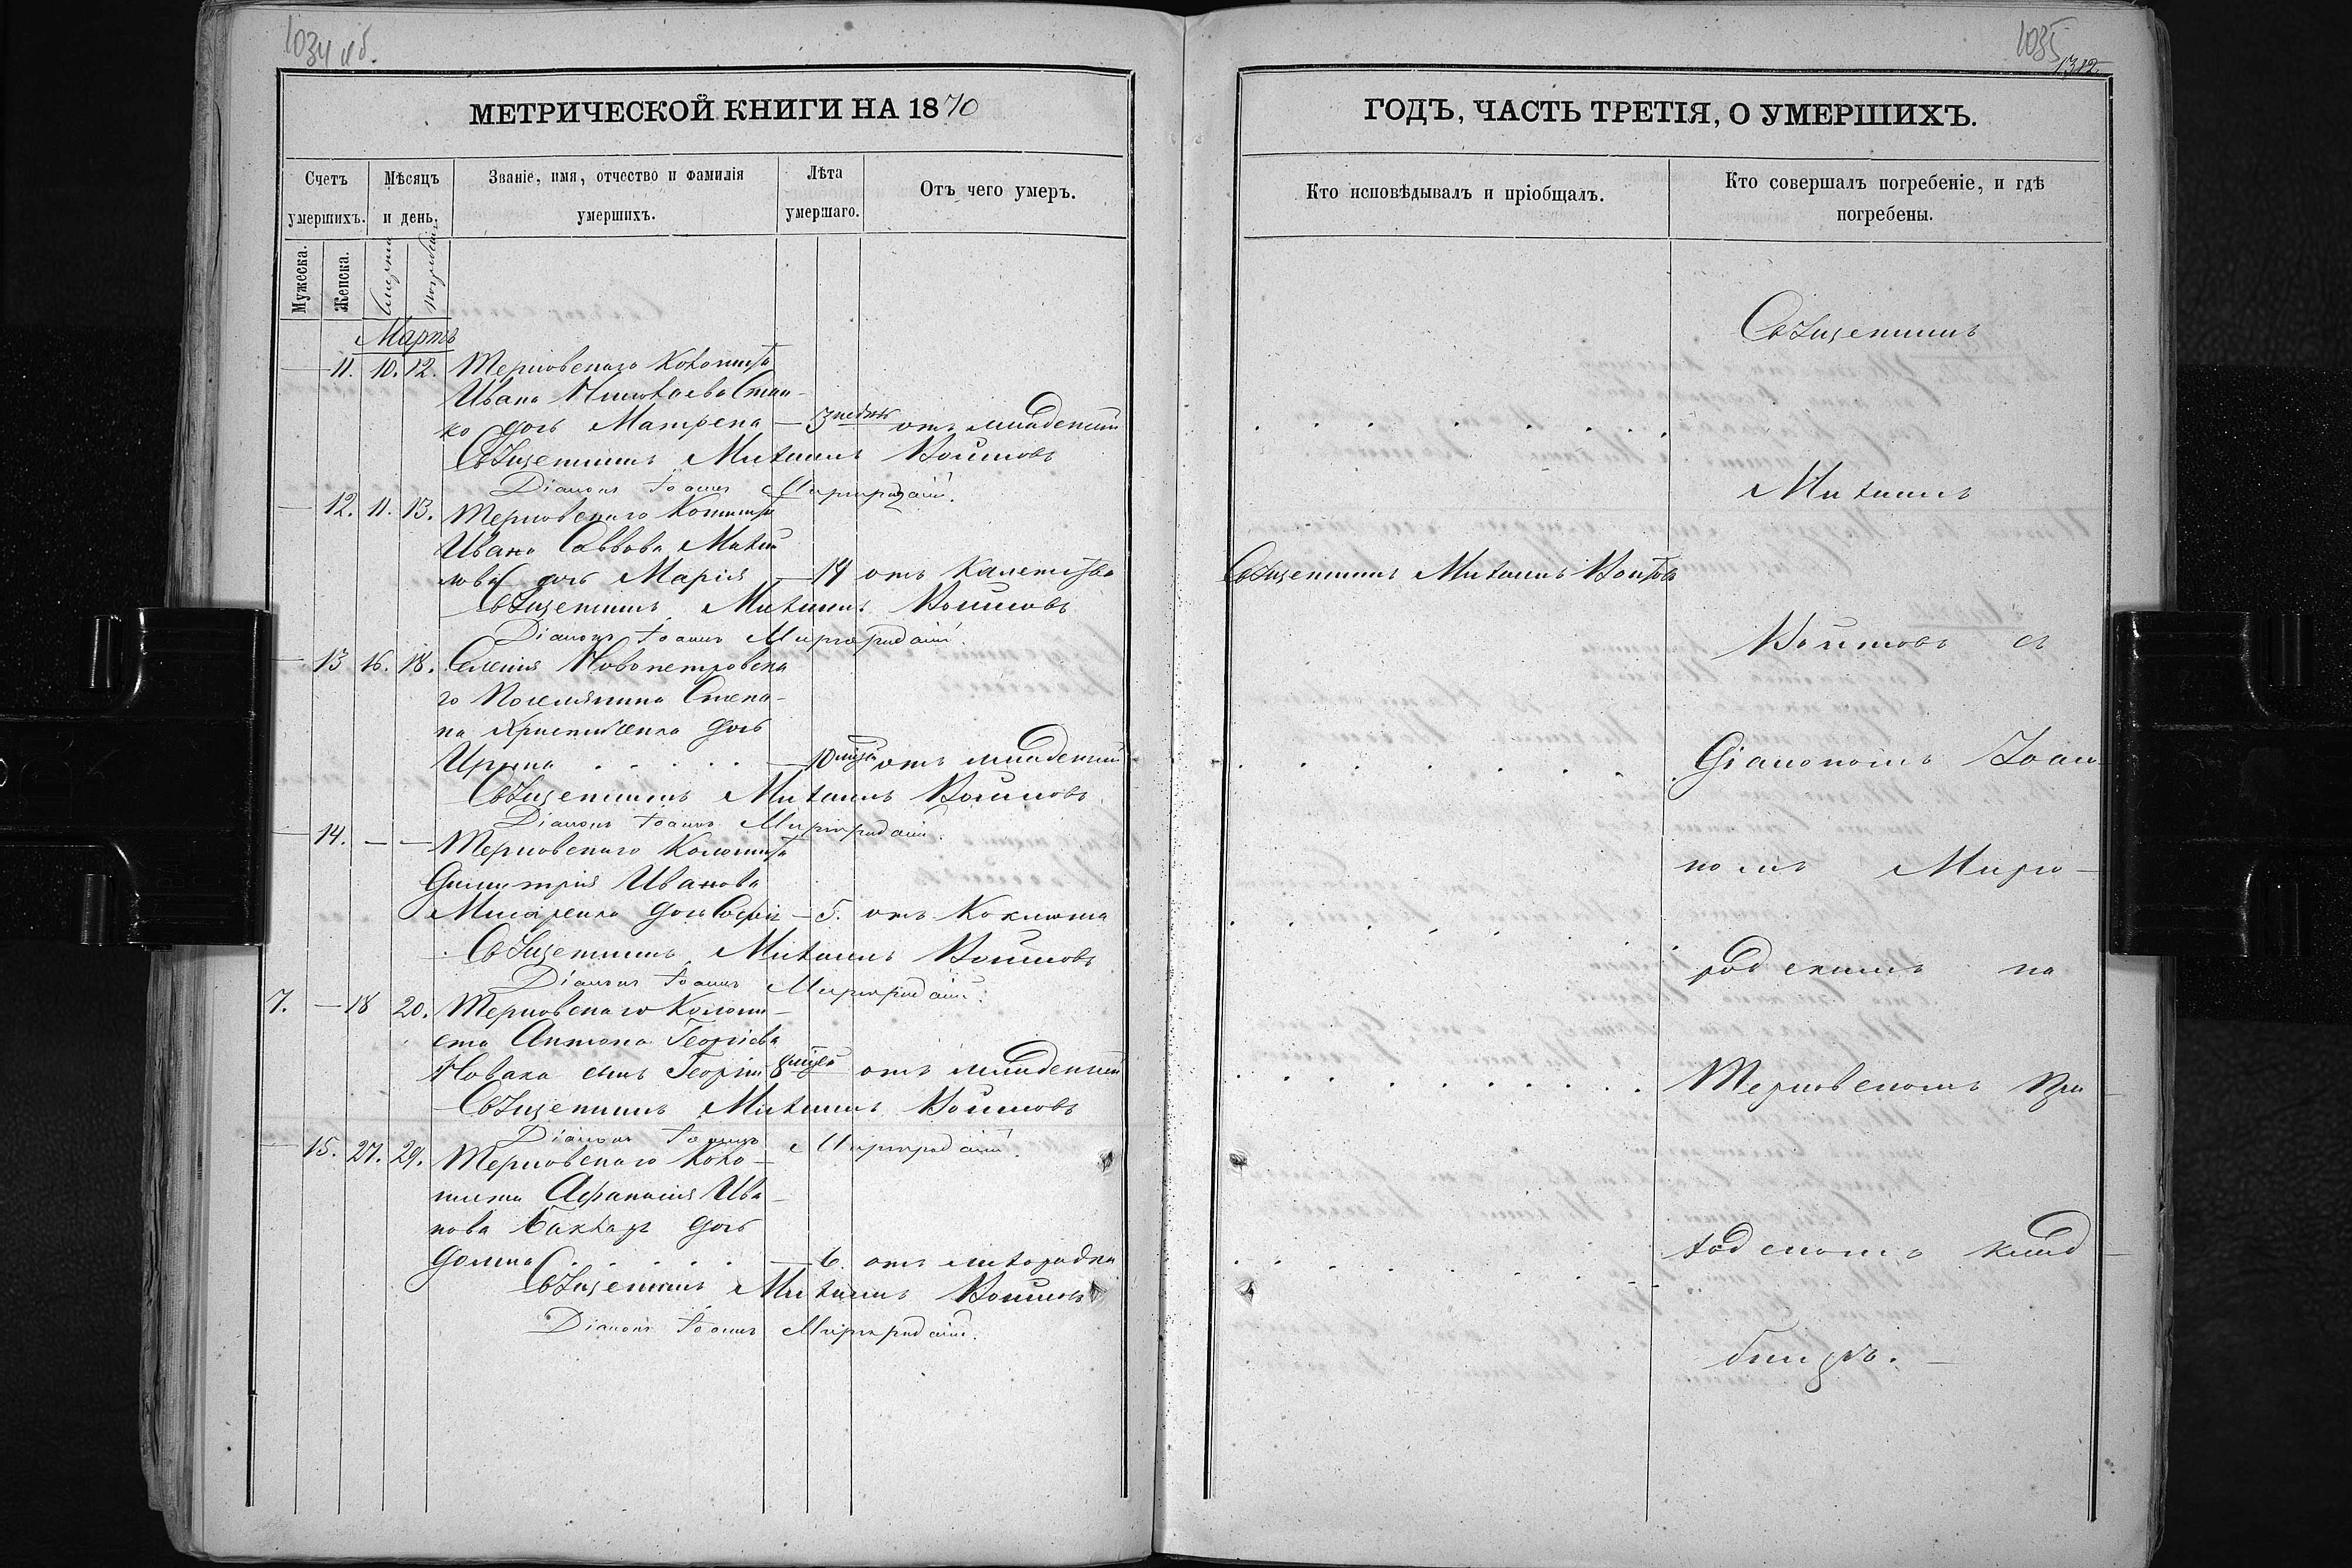 1034 об.
МЕТРИЧЕСКОЙ КНИГИ НА 1870
Счетъ умершихъ.
Мѣсяцъ и день.
Званіе, имя, отчество и фамилія умершихъ.
Лѣта умершаго.
Отъ чего умер.
Мужеска.
Женска.
Смерти
погребенія
Мартъ
11. 10. 12. Терновскаго Колониста
Ивана Николаева Стан-
ко дочь Матрена — 3 недѣль отъ младенчес
Священникъ Михаилъ Войтовъ
Діаконъ Іоаннъ Миргородскій.
12. 11. 13. Терновскаго Колониста
Ивана Саввова Михай
лова дочь Марія — 14 отъ
Священникъ Михаилъ Войтовъ
Діаконъ Іоаннъ Миргородскій.
13 16. 18. Селенія Новопетровска
го Поселянина Степа-
на дочь
Ирина . . . . . — 10 мцей отъ младенчес
Священникъ Михаилъ Войтовъ
Діаконъ Іоаннъ Миргородскій.
14. — — Терновскаго Колониста
Димитрія Иванова
дочь Софія — 5. отъ Коклюша
Священникъ Михаилъ Войтовъ
Діаконъ Іоаннъ Миргородскій.
7. — 18 20. Терновскаго Колони-
ста Антона Георгіева
Новака сынъ Георгій 8 мцей отъ младенчес
Священникъ Михаилъ Войтовъ
Діаконъ Іоаннъ Миргородскій.
15. 27. 29. Терновскаго Коло-
ниста Афанасія Ива-
нова дочь
Домна . . . . . — 6. отъ лихорадки
Священникъ Михаилъ Войтовъ
Діаконъ Іоаннъ Миргородскій.
1035
1312.
ГОДЪ, ЧАСТЬ ТРЕТІЯ, О УМЕРШИХЪ.
Кто исповѣдывалъ и пріобщалъ.
Кто совершалъ погребеніе, и гдѣ погребены.
Священникъ Михаилъ Войтовъ
Священникъ
Михаилъ
Войтовъ съ
Діакономъ Іоан-
номъ Мирго-
родскимъ на
Терновскомъ При
ходскомъ клад-
бищѣ.